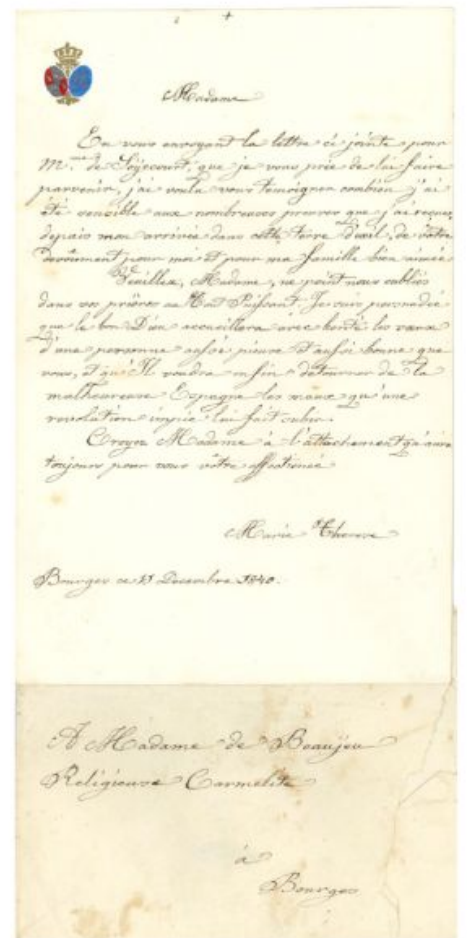 Madame
En vous envoyant la lettre ci jointe pour
M.me de Soyecourt, que je vous prie de lui faire
parvenir, j'ai voulu vous temoigner combien j'ai
été sensible aux nombreuses preuves que j'ai reçues,
depuis mon arrivée dans cette terre d'exil, de votre
devoûment pour moi et pour ma famille bien aimée
Veuillez, Madame, ne point nous oublier
dans vos prières au Tout Puissant. Je suis persuadée
que le bon Dieu accueillera avec bonté les vœux
d'une personne aussi pieuse et aussi bonne que
vous, et qu'Il voudra enfin detourner de la
malheureuse Espagne les maux qu'une
revolution impie lui fait subir.
Croyez Madame à l'attachement qu'aura
toujours pour vous vôtre affectionée
Marie Therese
Bourges ce 15 Decembre 1840.
A Madame de Beaujeu
Religieuse Carmelite
à
Bourges